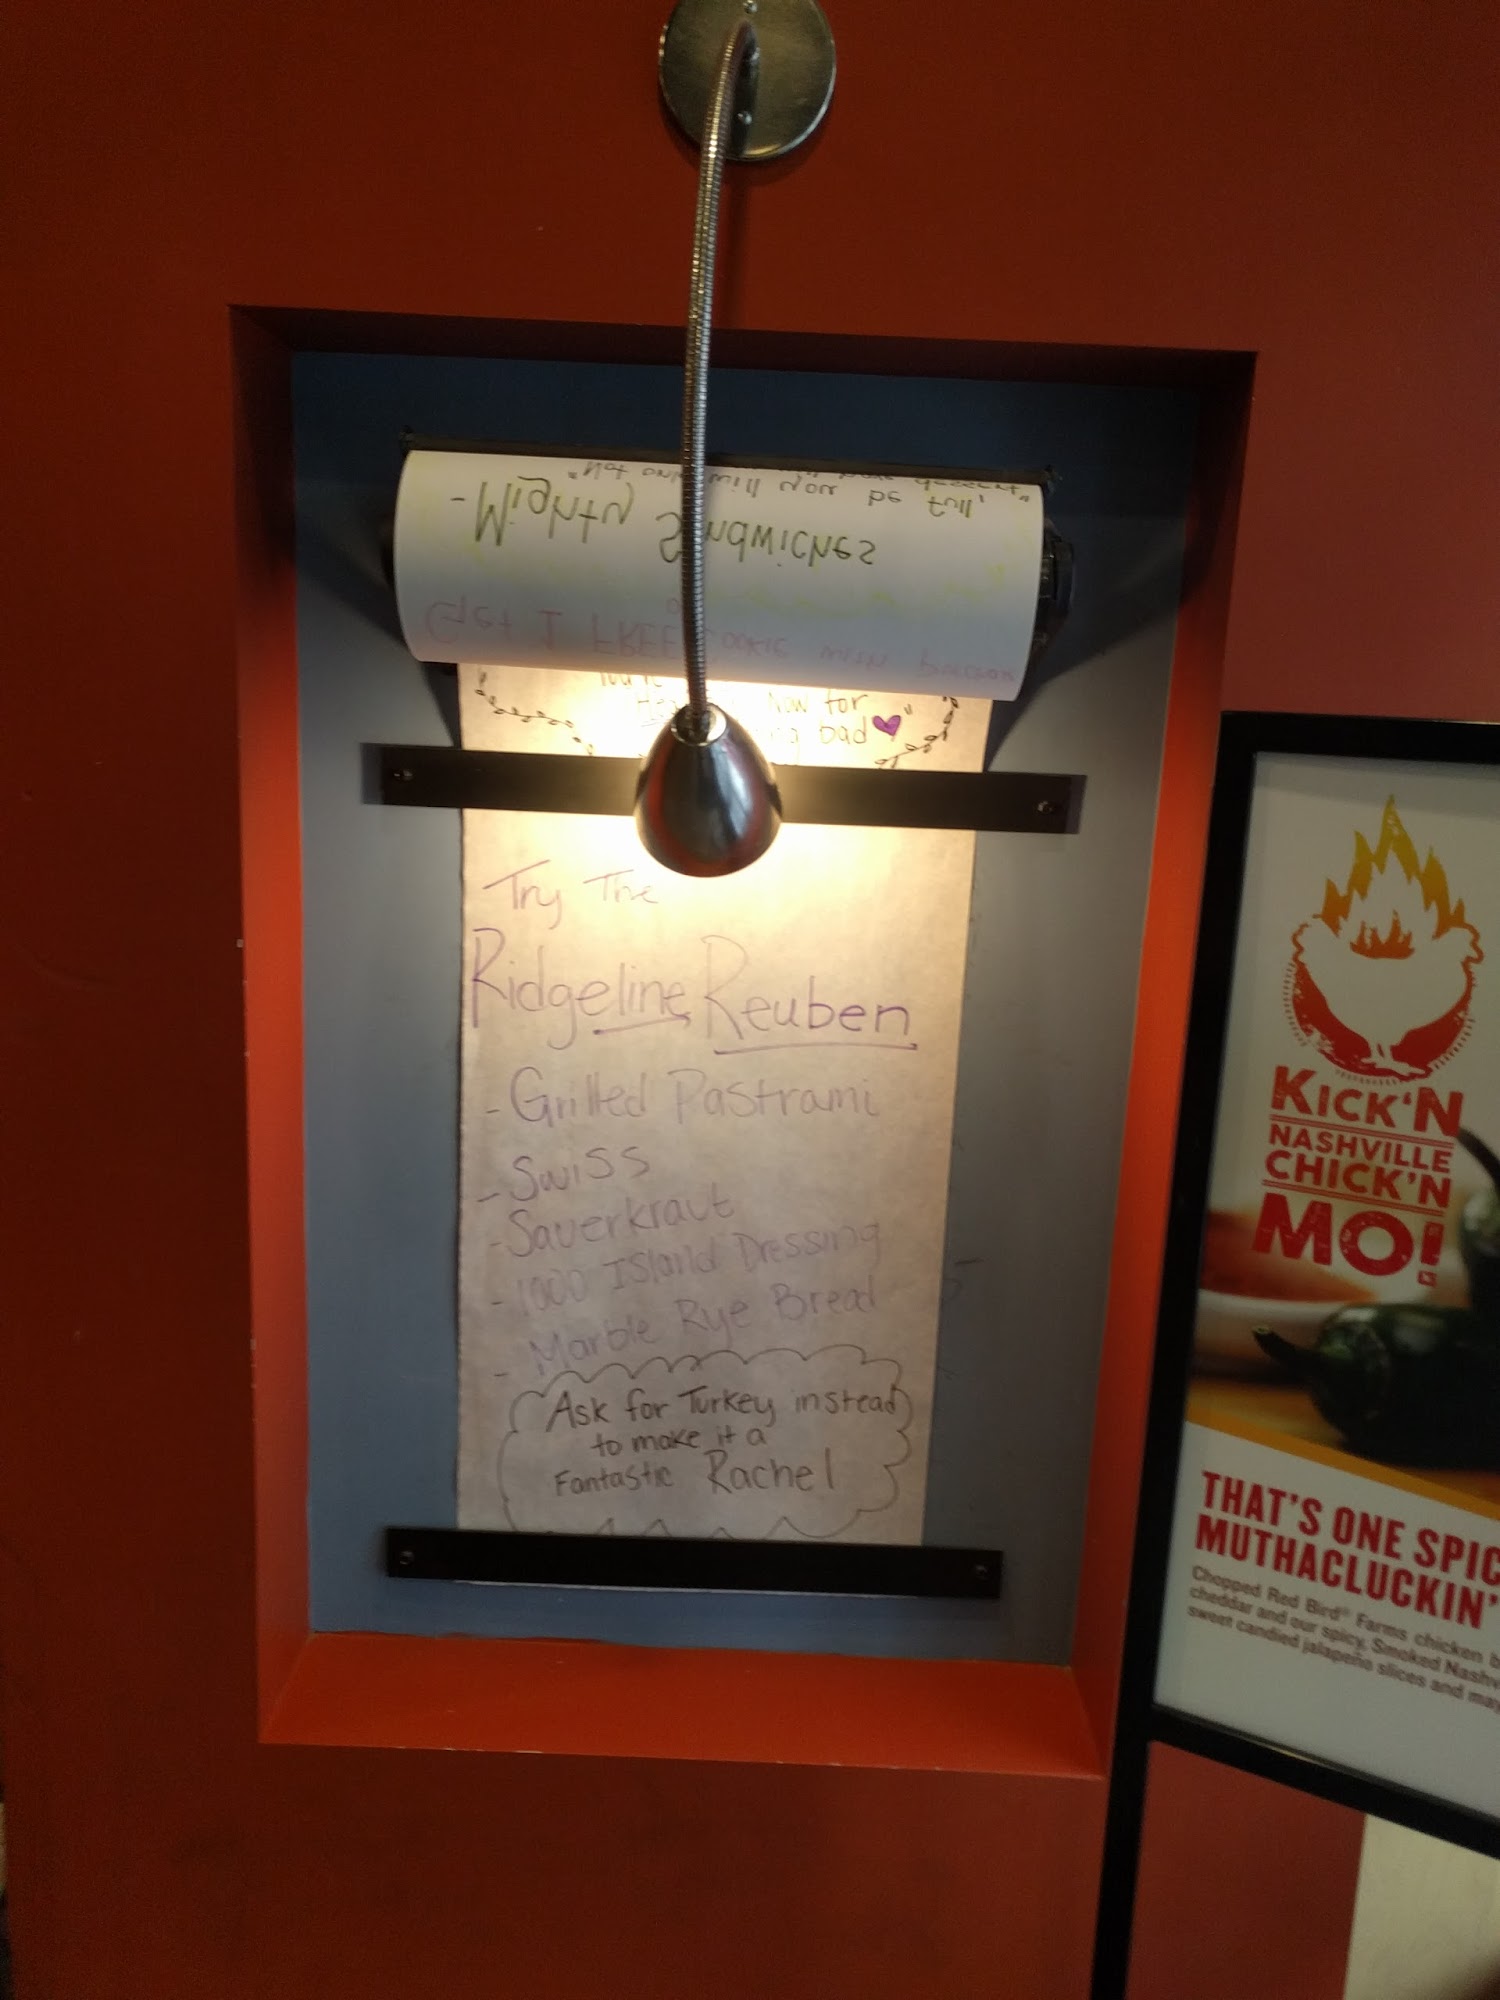 "Not will you be full,
- Mighty Sandwiches
Get 1 FREE cookie with
Now for
Dad
Try The
Ridgeline Reuben
- Grilled Pastrami
- Swiss
- Sauerkraut
- 1000 Island Dressing
- Marble Rye Bread
Ask for Turkey instead
to make it a
Fantastic Rachel
KICK'N
NASHVILLE
CHICK'N
MO!
THAT'S ONE
MUTHACLUCKIN'
Chopped Red Bird® Farms chicken
cheddar and our spicy, Smoked
sweet candied jalapeño slices and